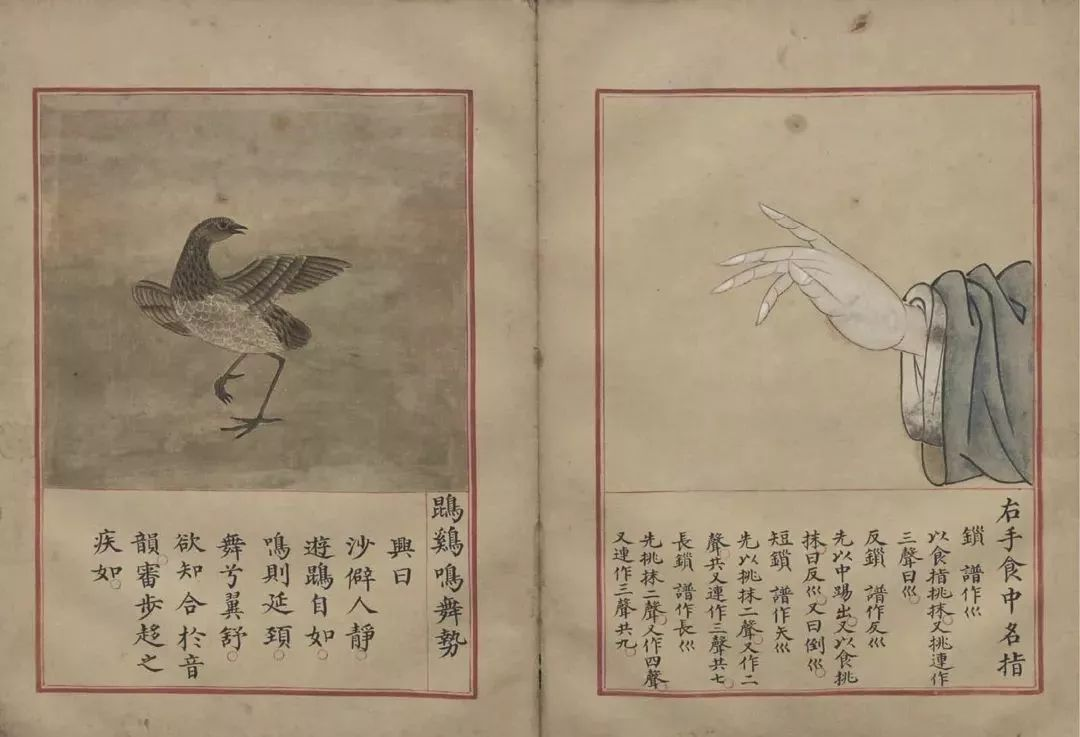 右手食中名指
鎖　譜作巛
以食指挑抹。又挑連作
三聲曰巛。
反鎖　譜作反巛
先以中踢出。又以食挑
抹曰反巛。又曰倒巛。
短鎖　譜作矢巛
先以挑抹二聲。又作二
聲。共又連作三聲共七。
長鎖　譜作長巛
先挑抹二聲。又作四聲。
又連作三聲共九。
鵾鷄鳴舞勢
興曰
沙僻人靜。
遊鵾自如。
鳴則延頸。
舞兮翼舒。
欲知合於音
韻。審步趍之
疾如。